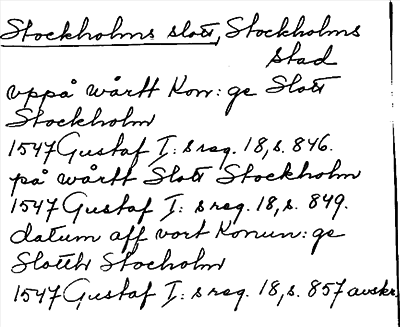 Stockholms slott, Stockholms
stad
uppå wårtt Kon: ge Slott
Stockholm
1547 Gustaf I: s reg. 18, s. 846.
på wårtt Slott Stockholm
1547 Gustaf I: s reg. 18, s. 849.
datum aff vort Konun: ge
Slotth Stocholm
1547 Gustaf I: s reg. 18, s. 857 avskr.